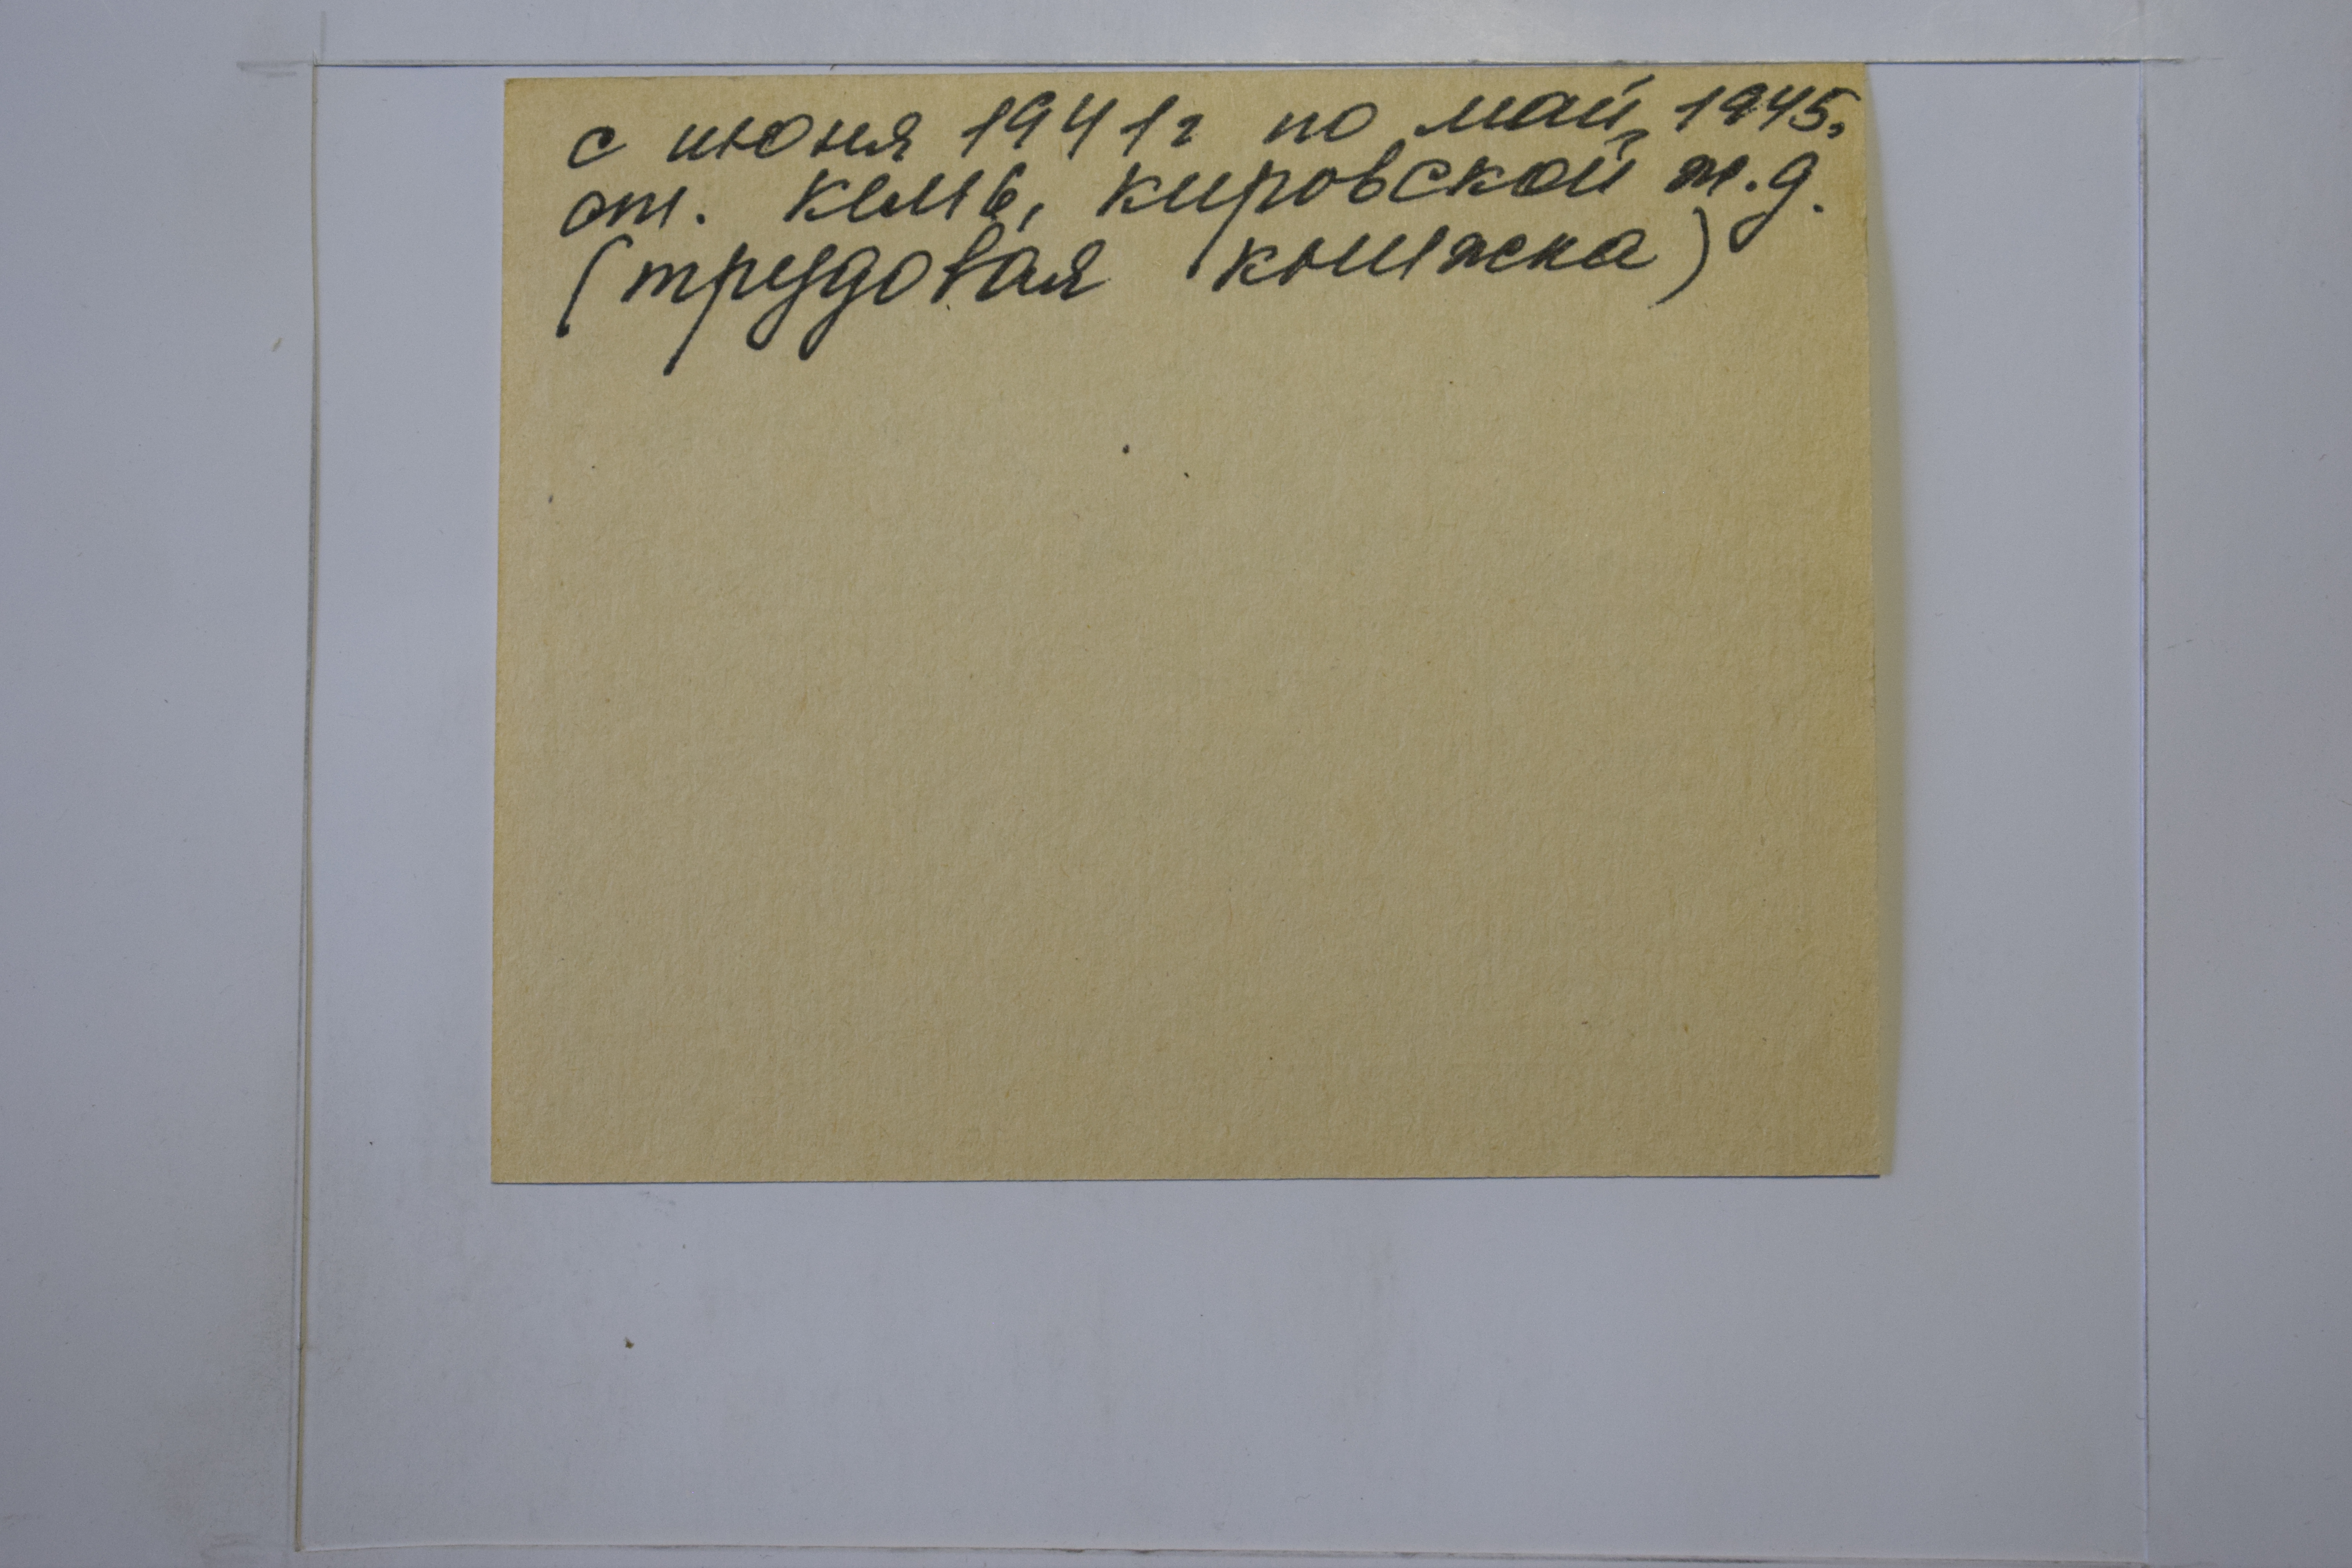 с июня 1941г по май 1945г
ст. Кемь, Кировской ж.д.
(трудовая книжка)